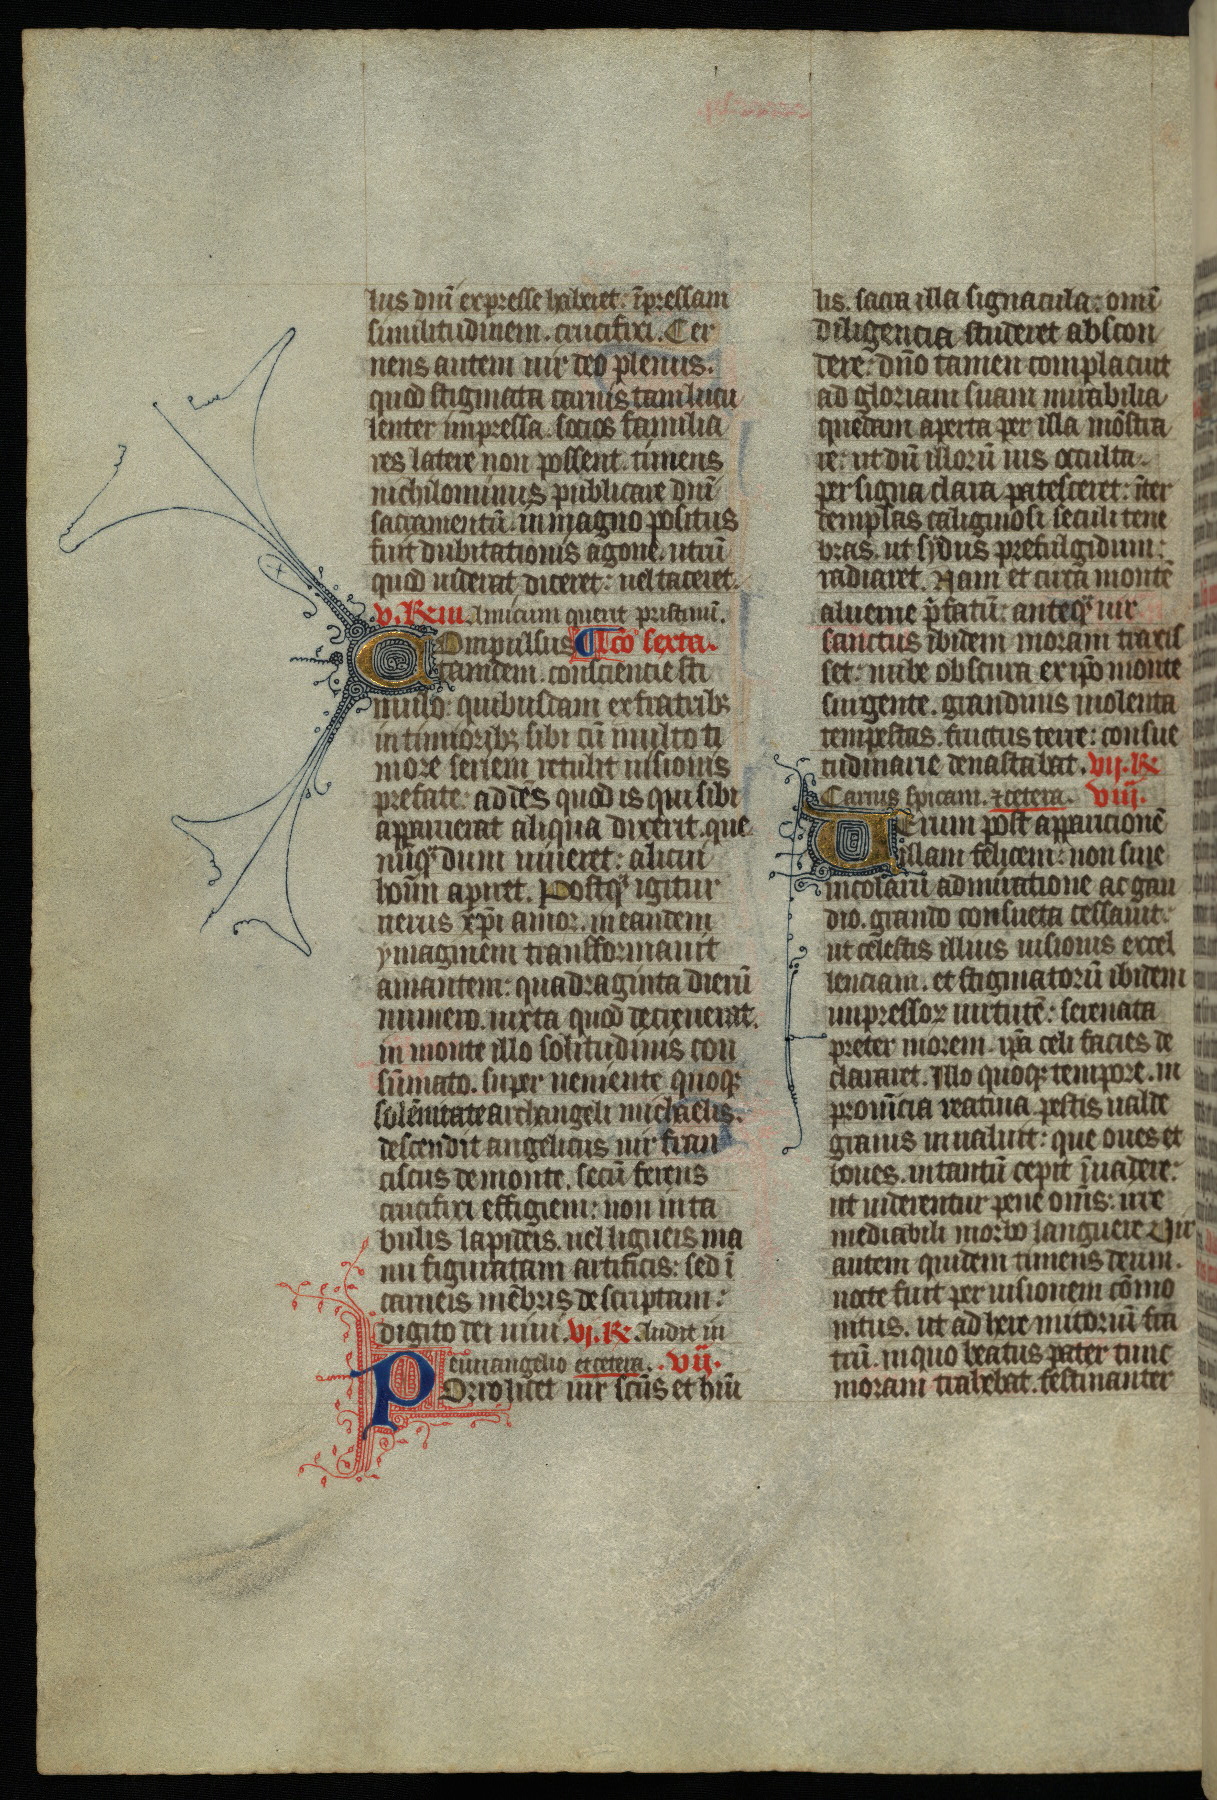 lus dnī expresse haberet: īpressam
similitudinem. crucifixi. Cer
nens autem uir deo plenus.
quod stigmata carnis tam lucu
lenter impressa. socios familia
res latere non possent. timens
nichilominus publicare dnī
sacramentū. in magno positus
fuit dubitationis agone. utrū
quod uiderat diceret: uel taceret.
v. R̃m. Amicum querit pristinū.
Compulsus Lc̄o sexta.
tamdem. consciencie sti
mulo: quibusdam ex fratribꝫ
intimioribꝫ sibi cū multo ti
more seriem retulit uisionis
prefate. addēs quod is qui sibi
apparuerat aliqua dixerit. que
nūqꝫ dum uiueret: alicui
hoīm aperiret. Postqꝫ igitur
uerus xp̄i amor. in eandem
ymaginem transformauit
amantem: quadraginta dierū
numero. iuxta quod decreuerat.
in monte illo solitudinis con
sūmato. super ueniente quoqꝫ
solēnitate archangeli michaelis.
descendit angelicus uir fran
ciscus de monte. secū ferens
crucifixi effigiem: non in ta
bulis lapideis. uel ligneis ma
nu figuratam artificis: sed ī
carneis mēbris descriptam:
digito dei uiui. vj. R̃ Audit in
euuangelio et cetera. . vij.
Porro licet uir scūs et hūi
lis. sacra illa signacula: omī
diligencia studeret abscon
dere: dn̄o tamen complacuit
ad gloriam suam mirabilia
quedam aperta per illa mōstra
re: ut dū illorū uis occulta.
per signa clara patesceret: īter
templas caliginosi seculi tene
bras. ut sydus prefulgidum:
radiaret. Nam et circa montē
aluerne p̄fatū: anteqꝫ uir
sanctus ibidem moram traxis
set: nube obscura ex ip̄o monte
surgente. grandinis uiolenta
tempestas. fructus terre: consue
tudinarie deuastabat. vij. R̃
Carnis spicam. et cetera. viij.
Uerum post apparicionē
illam felicem: non sine
incolarū admiratione ac gau
dio. grando consueta cessauit:
ut celestis illius uisionis excel
lenciam. et stigmatorū ibidem
impressoꝝ uirtutē: serenata
preter morem. ip̄a celi facies de
clararet. Illo quoqꝫ tempore. in
prouīcia reatina. pestis ualde
grauis inualuit: que oues et
boues. in tantū cepit īuadere:
ut uiderentur pene om̄s: irre
mediabili morbo languere. Uir
autem quidem timens deum.
nocte fuit per uisionem cōmo
nitus. ut ad here mitoriū fra
trū. in quo beatus pater tunc
moram trahebat. festinanter